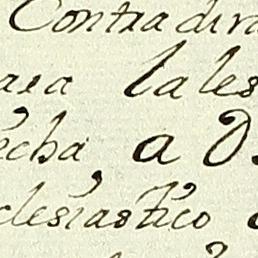 Contradira
ara Lales
echa a D.
clesiastico